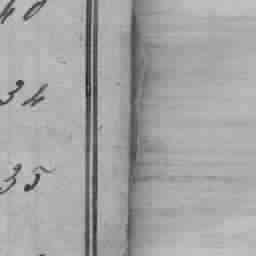 40
34
35